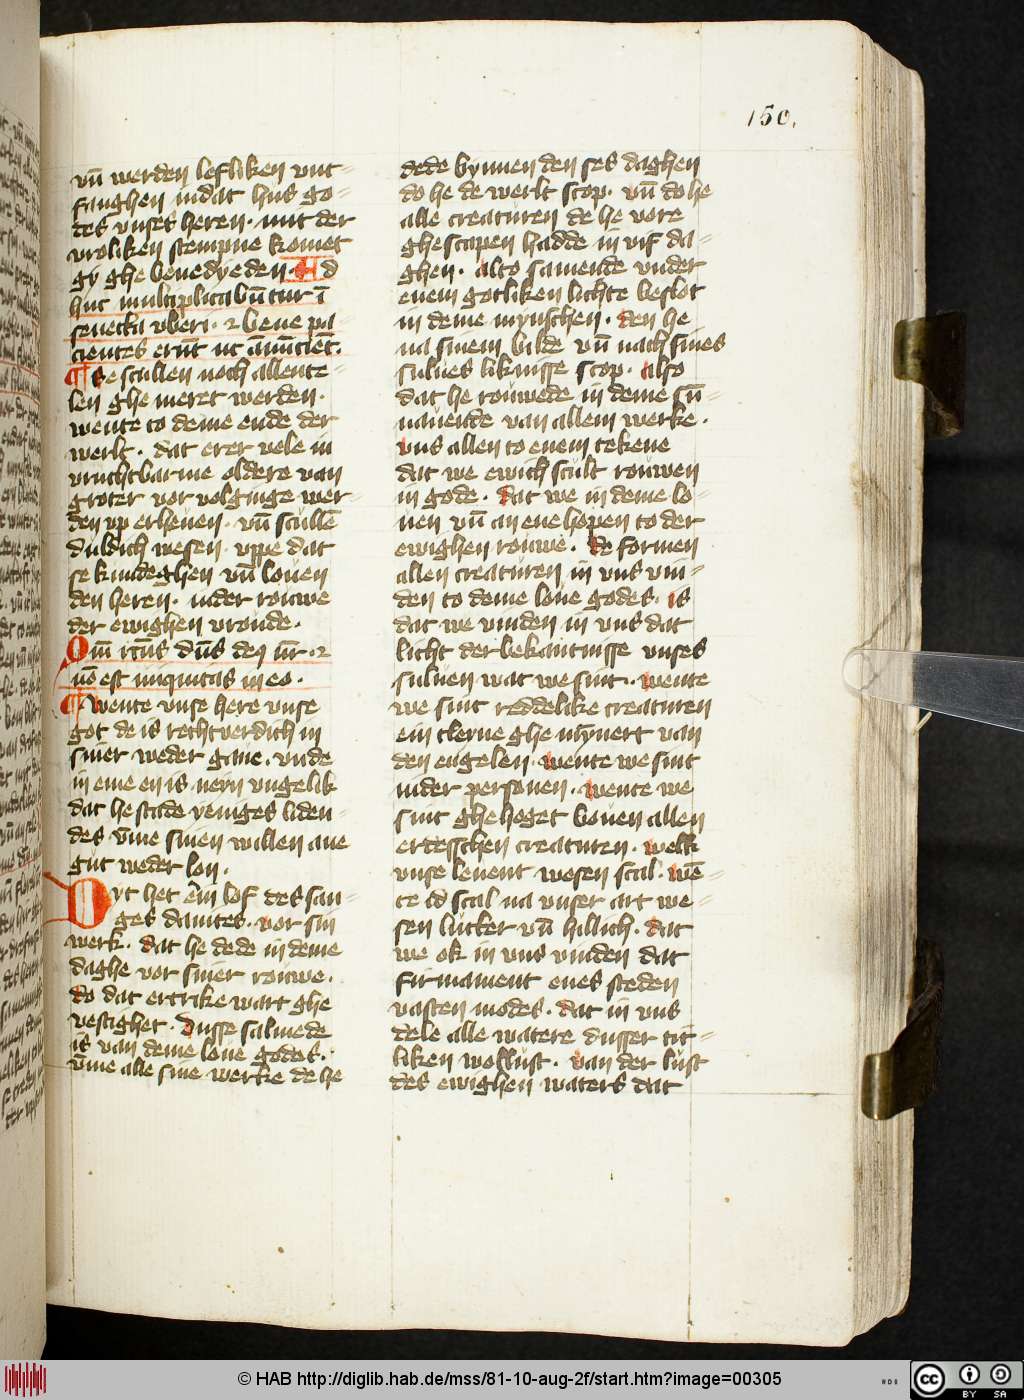 150.
vn̄ werden lefliken unt-
fanghen in dat hus go-
des unses heren. mit der
vroliken stempne komet
gy ghe benedyeden. Ad
huc multiplicabūtur ī
senecta uberi. ⁊ bene pa-
cientes erūt ut ānūciēt.
¶ Se scullen noch allente-
len ghe meret werden.
wente to deme ende der
werlt. dat erer vele in
vruchtbarme oldere van
groter vor volginge wer-
den up erheven. vn̄ scullē
duldich wesen. uppe dat
se kundeghen vn̄ loven
den heren. in der rouwe
der ewighen vroude.
Qm̄ rctūs dn̄s deꝯ nr̄. ⁊
nō est iniquitas in eo.
¶ Wente unse here unse
got de is rechtverdich in
siner weder gave. unde
in eme en is neyn ungelik
dat he stade yeniges liden-
des ūme sinen willen ane
gut weder lon.
Dyt het eīn lof des san-
ges davites. vor sin
werk. dat he dede in deme
daghe vor siner rouwe.
do dat ertrike wart ghe
vestighet. Dusse salmede
is van deme love godes.
ūme alle sine werke de he
dede bynnen den ses daghen
do he de werlt scop. vn̄ do he
alle creaturen de he vore
ghescapen hadde in vif da-
ghen. alto samende under
enem gotliken lichte beslot
in deme mynschen. den he
na sinem bilde vn̄ nach sines
sulves liknisse scop. also
dat he rouwede in deme sū-
navende van allem werke.
uns allen to enem tekene
dat we ewich scult rouwen
in gode. dat we in deme lo-
ven vn̄ an ene hoppen to der
ewighen rouwe. de formen
allen creaturen in uns vin-
den to deme love godes. is
dat we vinden in uns dat
licht der bekantnisse unses
sulven wat we sint. wente
we sint reddelike creaturen
ein cleyne ghe mynert van
den engelen. wente we sint
in der personen. wente we
sint ghe hoget boven allen
ertesschen creaturen. welk
unse levent wesen scal. wē-
te id scal na unser art we-
sen lucter vn̄ hillich. dat
we ok in uns vinden dat
firmament enes steden
vasten modes. dat in uns
dele alle watere dusser tit-
liken wollust. van der lust
des ewighen waters dat
© HAB http://diglib.hab.de/mss/81-10-aug-2f/start.htm?image=00305
BY SA